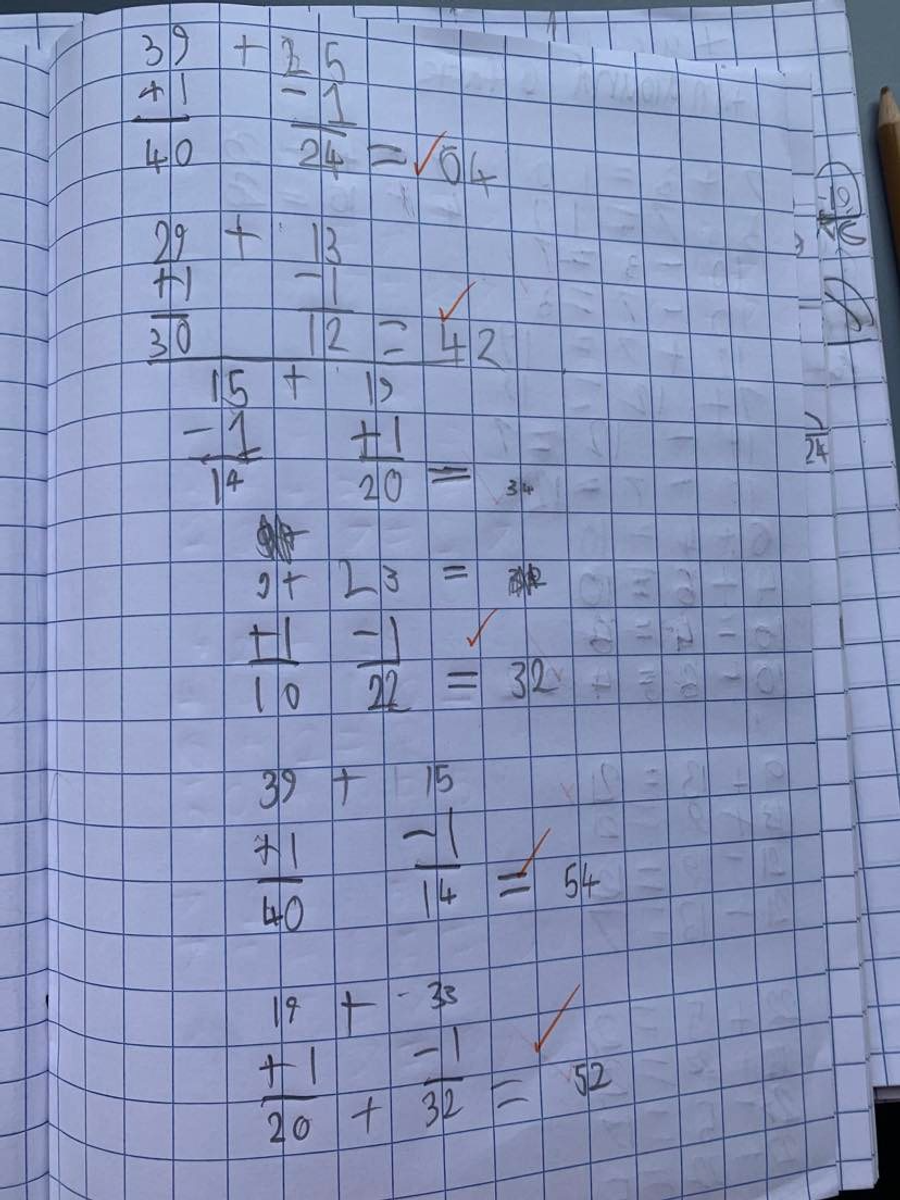 39 + 25
+1 -1
40 24 = 64
29 + 13
+1 -1
30 12 = 42
15 + 19
-1 +1
14 20 = 34
9 + 23 =
+1 -1
10 22 = 32
39 + 15
+1 -1
40 14 = 54
19 + 33
+1 -1
20 + 32 = 52
24